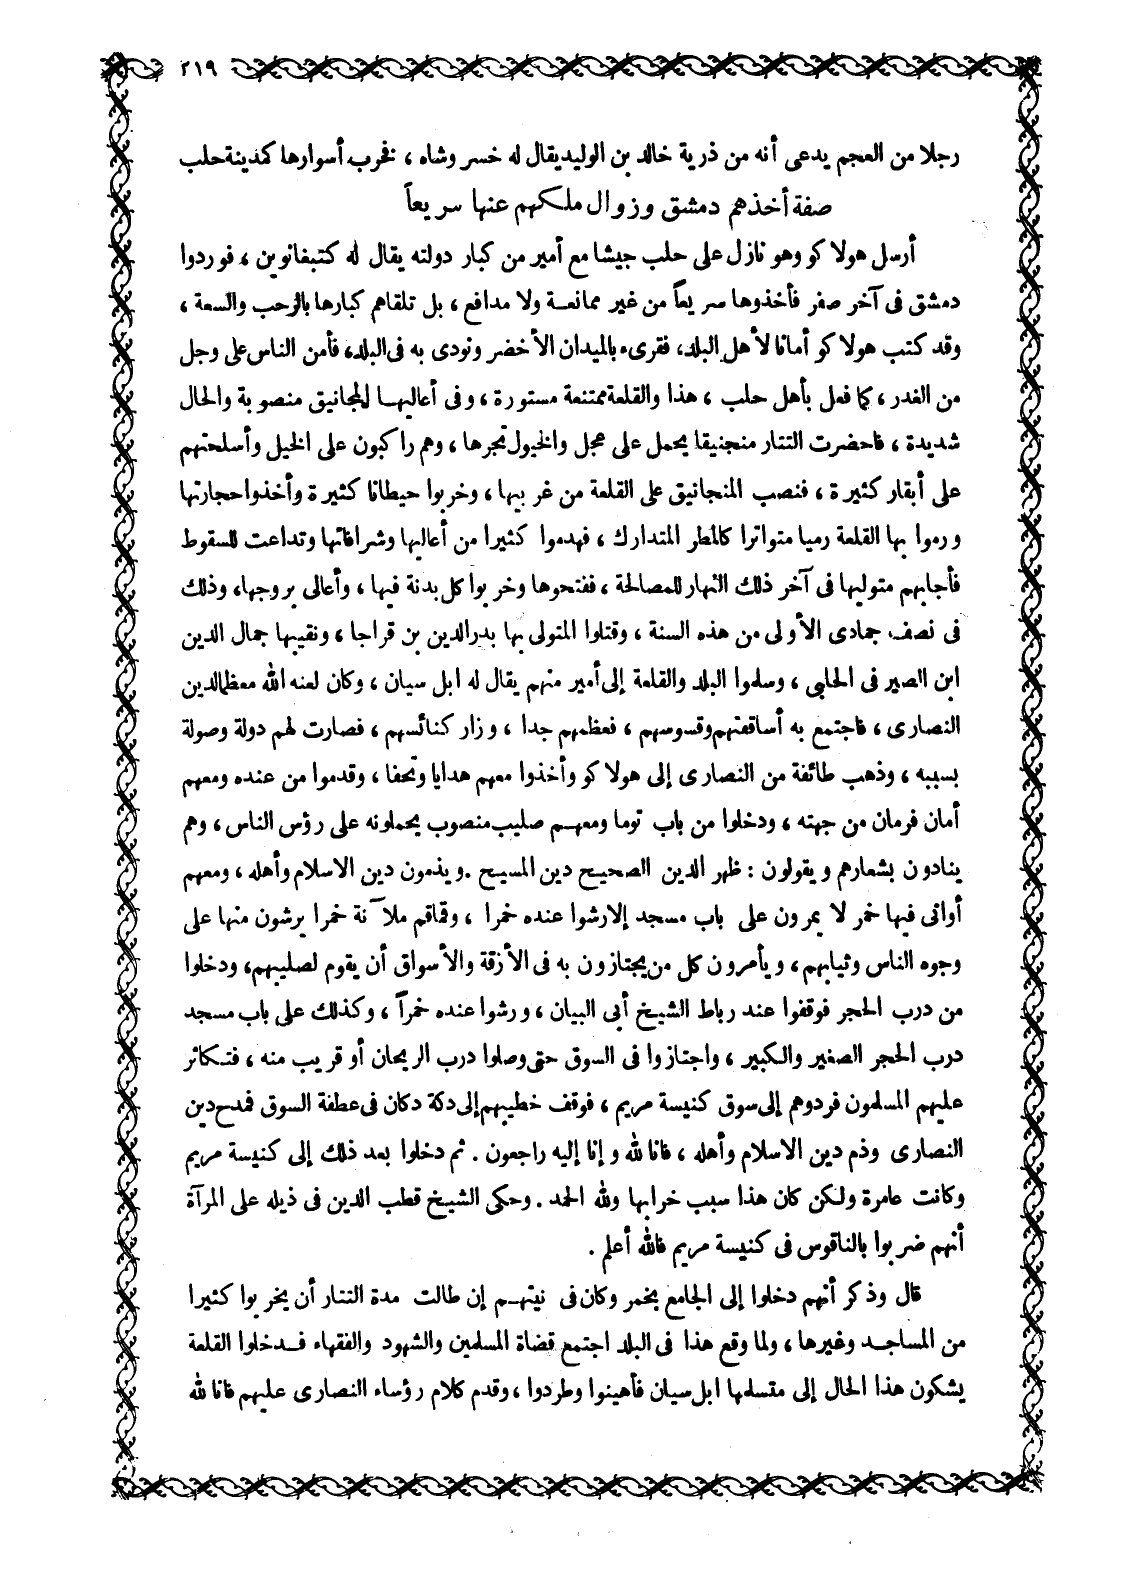 ٢١٩
رجلا من العجم يدعى أنه من ذرية خالد بن الوليد يقال له خسر وشاه ، فخرب أسوارها كمدينة حلب
صفة أخذهم دمشق وزوال ملكهم عنها سريعاً
أرسل هولاكو وهو نازل على حلب جيشا مع أمير من كبار دولته يقال له كتبغانوين ، فوردوا
دمشق فى آخر صفر فأخذوها سريعاً من غير ممانعة ولا مدافع ، بل تلقاهم كبارها بالرحب والسعة ،
وقد كتب هولاكو أمانا لأهل البلد، فقرىء بالميدان الأخضر ونودى به فى البلد، فأمن الناس على وجل
من الغدر ، كما فعل بأهل حلب ، هذا والقلعة ممتنعة مستورة ، وفى أعاليها المجانيق منصوبة والحال
شديدة ، فاحضرت التتار منجنيقا يحمل على عجل والخيول تجرها ، وهم راكبون على الخيل وأسلحتهم
على أبقار كثيرة ، فنصب المنجانيق على القلعة من غربيها ، وخربوا حيطانا كثيرة وأخذوا حجارتها
ورموا بها القلعة رميا متواترا كالمطر المتدارك ، فهدموا كثيرا من أعاليها وشرافاتها وتداعت للسقوط
فأجابهم متوليها فى آخر ذلك النهار للمصالحة ، ففتحوها وخربوا كل بدنة فيها ، وأعالى بروجها، وذلك
فى نصف جمادى الأولى من هذه السنة ، وقتلوا المتولى بها بدر الدين بن قراجا ، ونقيبها جمال الدين
ابن الصير فى الحلبى ، وسلموا البلد والقلعة إلى أمير منهم يقال له ابل سيان ، وكان لعنه الله معظما لدين
النصارى ، فاجتمع به أساقفتهم وقسوسهم ، فعظمهم جدا ، وزار كنائسهم ، فصارت لهم دولة وصولة
بسببه ، وذهب طائفة من النصارى إلى هولاكو وأخذوا معهم هدايا وتحفا ، وقدموا من عنده ومعهم
أمان فرمان من جهته ، ودخلوا من باب توما ومعهم صليب منصوب يحملونه على رؤس الناس ، وهم
ينادون بشعارهم ويقولون : ظهر الدين الصحيح دين المسيح . ويذمون دين الاسلام وأهله ، ومعهم
أوانى فيها خمر لا يمرون على باب مسجد إلا رشوا عنده خمرا ، وقماقم ملآنة خمرا يرشون منها على
وجوه الناس وثيابهم ، ويأمرون كل من يجتازون به فى الأزقة والأسواق أن يقوم لصليبهم، ودخلوا
من درب الحجر فوقفوا عند رباط الشيخ أبى البيان ، ورشوا عنده خمراً ، وكذلك على باب مسجد
درب الحجر الصغير والكبير ، واجتازوا فى السوق حتى وصلوا درب الريحان أو قريب منه ، فتكاثر
عليهم المسلمون فردوهم إلى سوق كنيسة مريم ، فوقف خطيبهم إلى دكة دكان فى عطفة السوق فمدح دين
النصارى وذم دين الاسلام وأهله ، فانا لله وإنا إليه راجعون . ثم دخلوا بعد ذلك إلى كنيسة مريم
وكانت عامرة ولكن كان هذا سبب خرابها ولله الحمد . وحكى الشيخ قطب الدين فى ذيله على المرآة
أنهم ضربوا بالناقوس فى كنيسة مريم فالله أعلم .
قال وذكر أنهم دخلوا إلى الجامع بخمر وكان فى نيتهم إن طالت مدة التتار أن يخربوا كثيرا
من المساجد وغيرها ، ولما وقع هذا فى البلد اجتمع قضاة المسلمين والشهود والفقهاء فدخلوا القلعة
يشكون هذا الحال إلى متسلمها ابل سيان فأهينوا وطردوا ، وقدم كلام رؤساء النصارى عليهم فانا لله